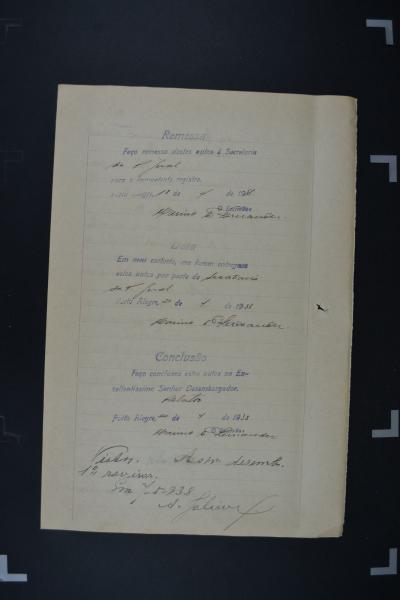 Remessa
Faço remessa destes autos á Secretaria
do T. Jud.
para o competente registro.
Porto Alegre, de 4 de 1938
O Escrivão
Data
Em meu cartorio, me foram entregues
estes autos por parte da Secretaria
do T. Jud.
Porto Alegre, de 4 de 1938
Conclusão
Faço conclusos estes autos ao Ex-
cellentissimo Senhor Desembargador.
Relator
Porto Alegre, de 4 de 1938
O Escrivão
Vistos. Ao sr. desemb.
1º revisor.
Em 7-5-938
A.